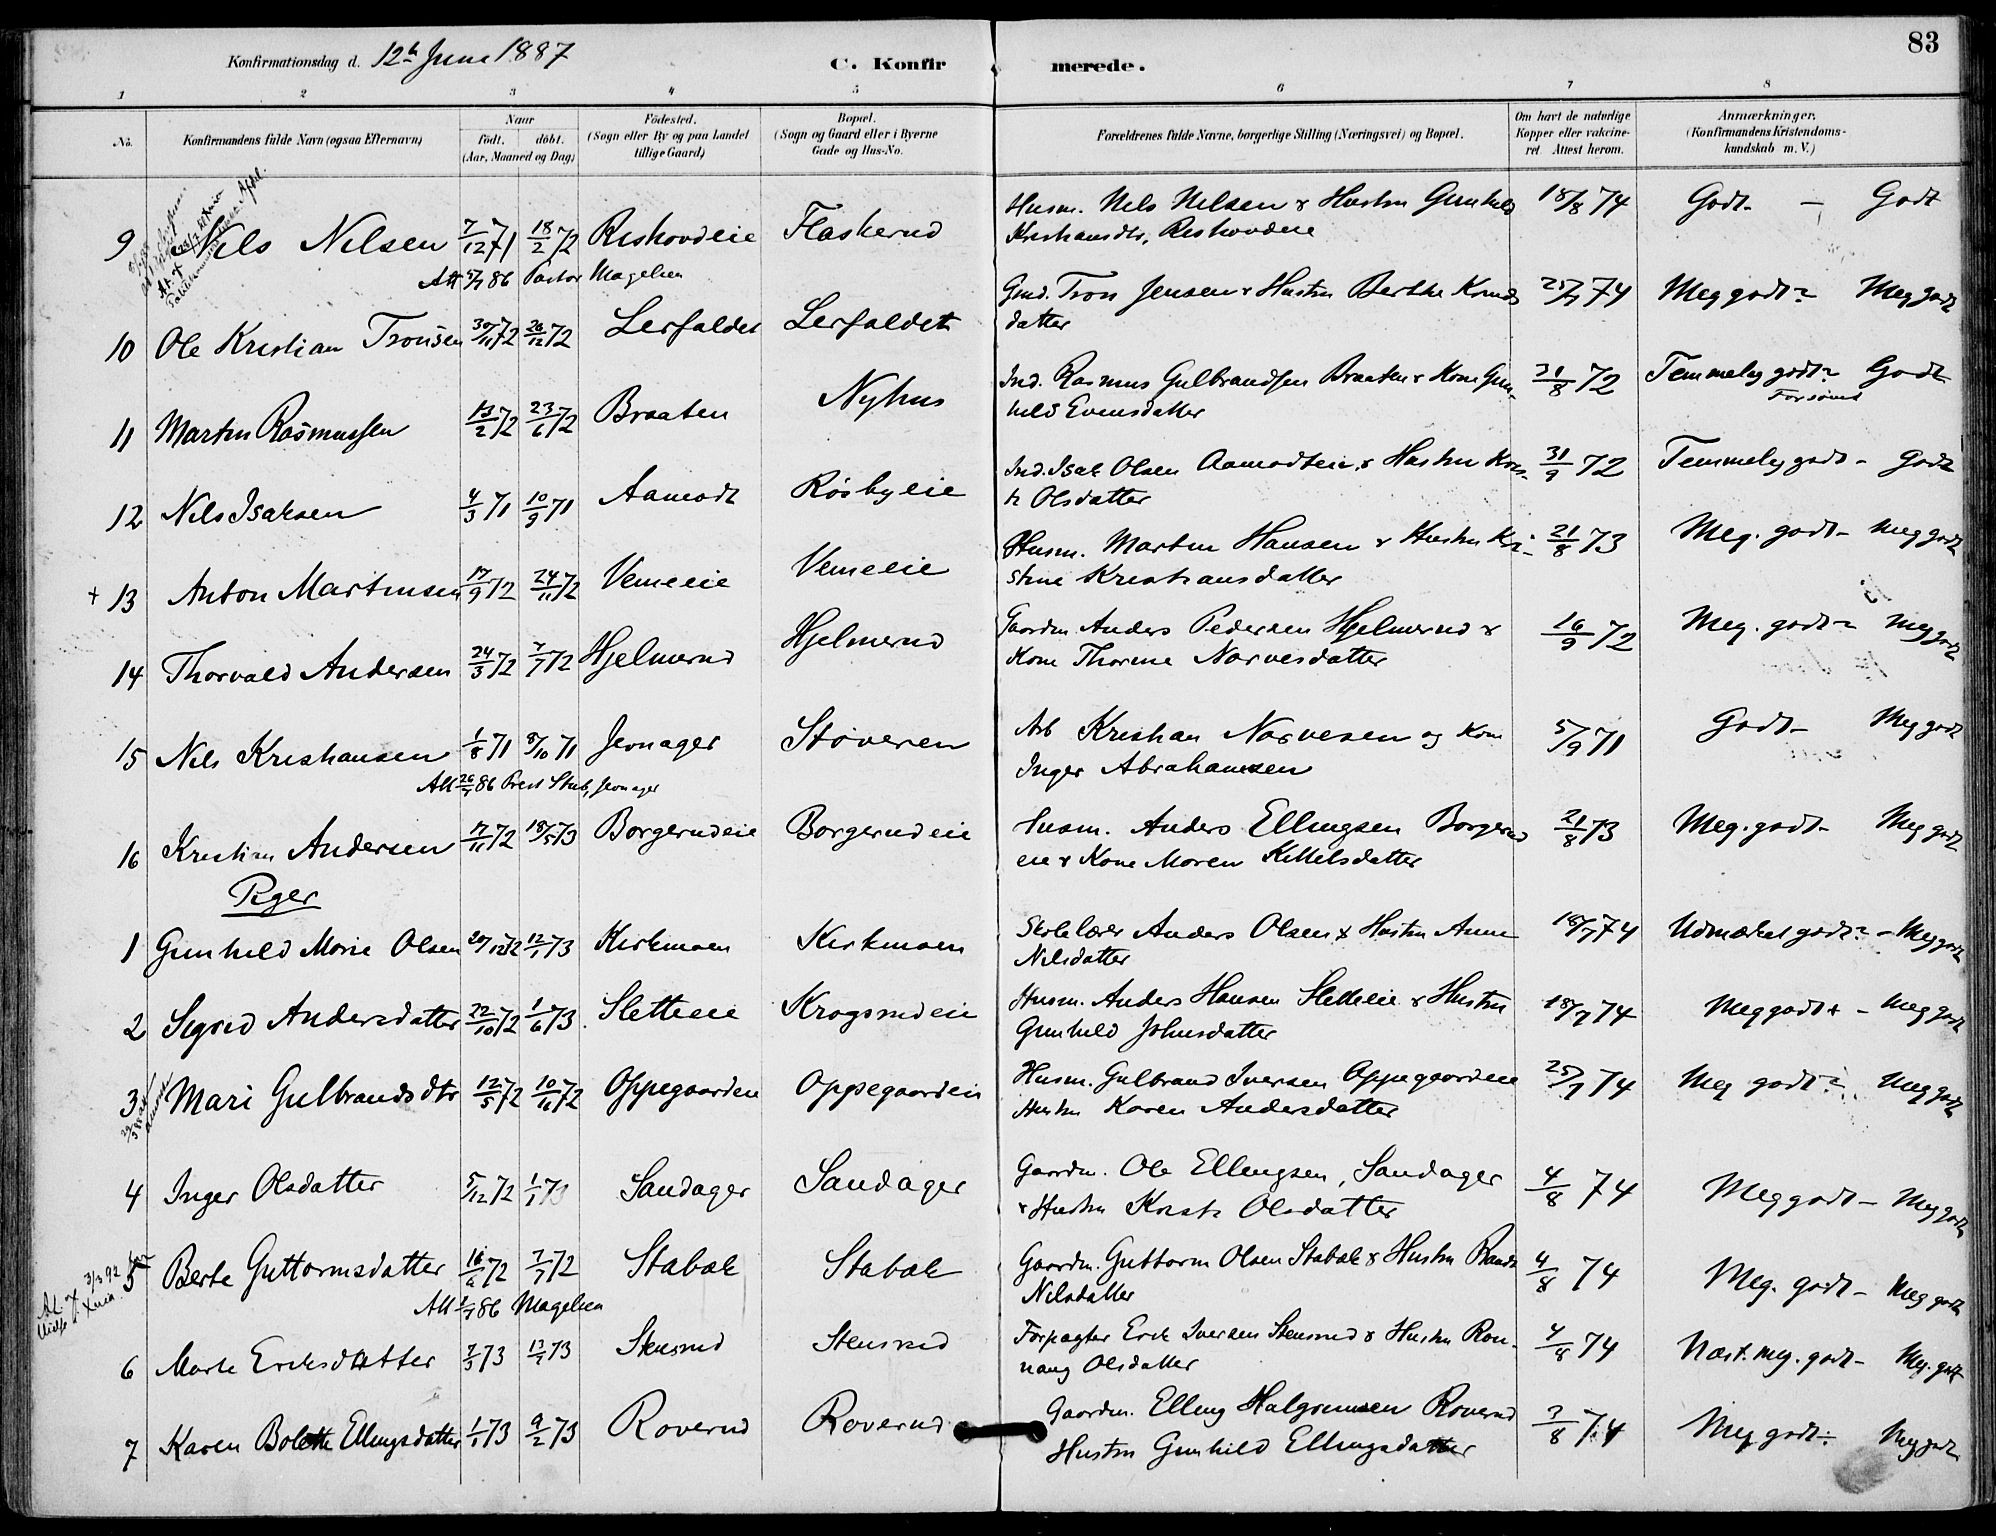 83
Konfirmationsdag d. 12te Juni 1887
C. Konfirmerede.
1 2 3 4 5 6 7 8
No. Konfirmandens fulde Navn (ogsaa Efternavn) Naar født. døbt. (Aar, Maaned og Dag) Fødested. (Sogn eller By og paa Landet tillige Gaard) Bopæl. (Sogn og Gaard eller i Byerne Gade og Hus-No. Forældrenes fulde Navne, borgerlige Stilling (Næringsvei) og Bopæl. Om havt de naturlige Kopper eller vakcineret Attest herom. Anmærkninger. (Konfirmandens Kristendomskundskab m. V.)
9 Nils Nilsen 7/12 71 18/2 72 Rishovdeie Flaskerud Husm. Nils Nilsen & Hustru Gunhild 18/8 74 Godt - Godt
Kristiansdtr, Rishovdeie
Att 5/7 86 Pastor Magelsen
10 Ole Kristian Tronsen 30/11 72 26/12 72 Lerfaldet Lerfaldet Gmd. Tron Jensen & Hustru Berthe Knuds 25/7 74 Meg godt Meg godt
datter
11 Martin Rasmussen 13/2 72 23/6 72 Braaten Nyhus Ind. Rasmus Gulbrandsen Braaten & Kone Gun- 31/8 72 Temmelig godt Godt
hild Evensdatter Forsømt
12 Nils Isaksen 4/3 71 10/9 71 Aamodt Røsbyeie Ind. Isak Olsen Aamodteie & Hustru 31/9 72 Temmelig godt - Godt
Olsdatter
+ 13 Anton Martinsen 17/9 72 24/11 72 Vemeeie Vemeeie Husm. Martin Hansen & Hustru Kri- 21/8 73 Meg. godt - Meg godt
stine Kristiansdatter
14 Thorvald Andersen 24/3 72 7/7 72 Hjelmerud Hjelmerud Gaardm. Anders Pedersen Hjelmerud & 16/9 72 Meg. godt Meg godt
Kone Thorine Narvesdatter
15 Nils Kristiansen 1/8 71 8/10 71 Jevnager Støveren Arb Kristian Narvesen og Kone 5/9 71 Godt - Meg godt
Inger Abrahamsen
Att 26/7 86 Prest Stub, Jevnager
16 Kristian Andersen 17/11 72 18/5 73 Borgerudeie Borgerudeie Husm. Anders Ellingsen Borgerud 21/8 73 Meg. godt - Meg godt
eie & Kone Maren Kittilsdatter
Piger
1 Gunhild Marie Olsen 20/12 72 12/1 73 Kirkmoen Kirkmoen Skolelærer Anders Olsen & Hustru Anne 18/7 74 Udmærket godt - Meg godt
Nilsdatter
2 Sigrid Andersdatter 22/10 72 1/6 73 Sletteeie Krogsrudeie Husm. Anders Hansen Sletteeie & Hustru 18/7 74 Meg godt + - Meg godt
Gunhild Johnsdatter
3 Mari Gulbrandsdtr 12/5 72 10/11 72 Oppegaardeie Oppegaardeie Husm. Gulbrand Iversen Oppegaardeie 25/7 74 Meg godt Meg godt
Hustru Karen Andersdatter
4 Inger Olsdatter 5/12 72 1/1 73 Sandager Sandager Gaardm. Ole Ellingsen, Sandager 4/8 74 Meg godt - Meg godt
& Hustru Olsdatter
5 Berte Guttormsdatter 16/6 72 7/7 72 Stabæk Stabæk Gaardm. Guttorm Olsen Stabæk & Hustru Randi 4/8 74 Meg. godt - Meg godt
Nilsdatter
3/3 92
Att 1/7 86 Magelsen
6 Marte Eriksdatter 2/3 73 13/7 73 Stensrud Stensrud Forpagter Erik Iversen Stensrud & Hustru Ron- 4/8 74 Næst. meg. godt - Meg. godt
naug Olsdatter
7 Karen Bolette Ellingsdatter 1/1 73 9/2 73 Roverud Roverud Gaardm. Elling Halgrimsen Roverud 3/8 74 Meg godt Meg godt
Hustru Gunhild Ellingsdatter